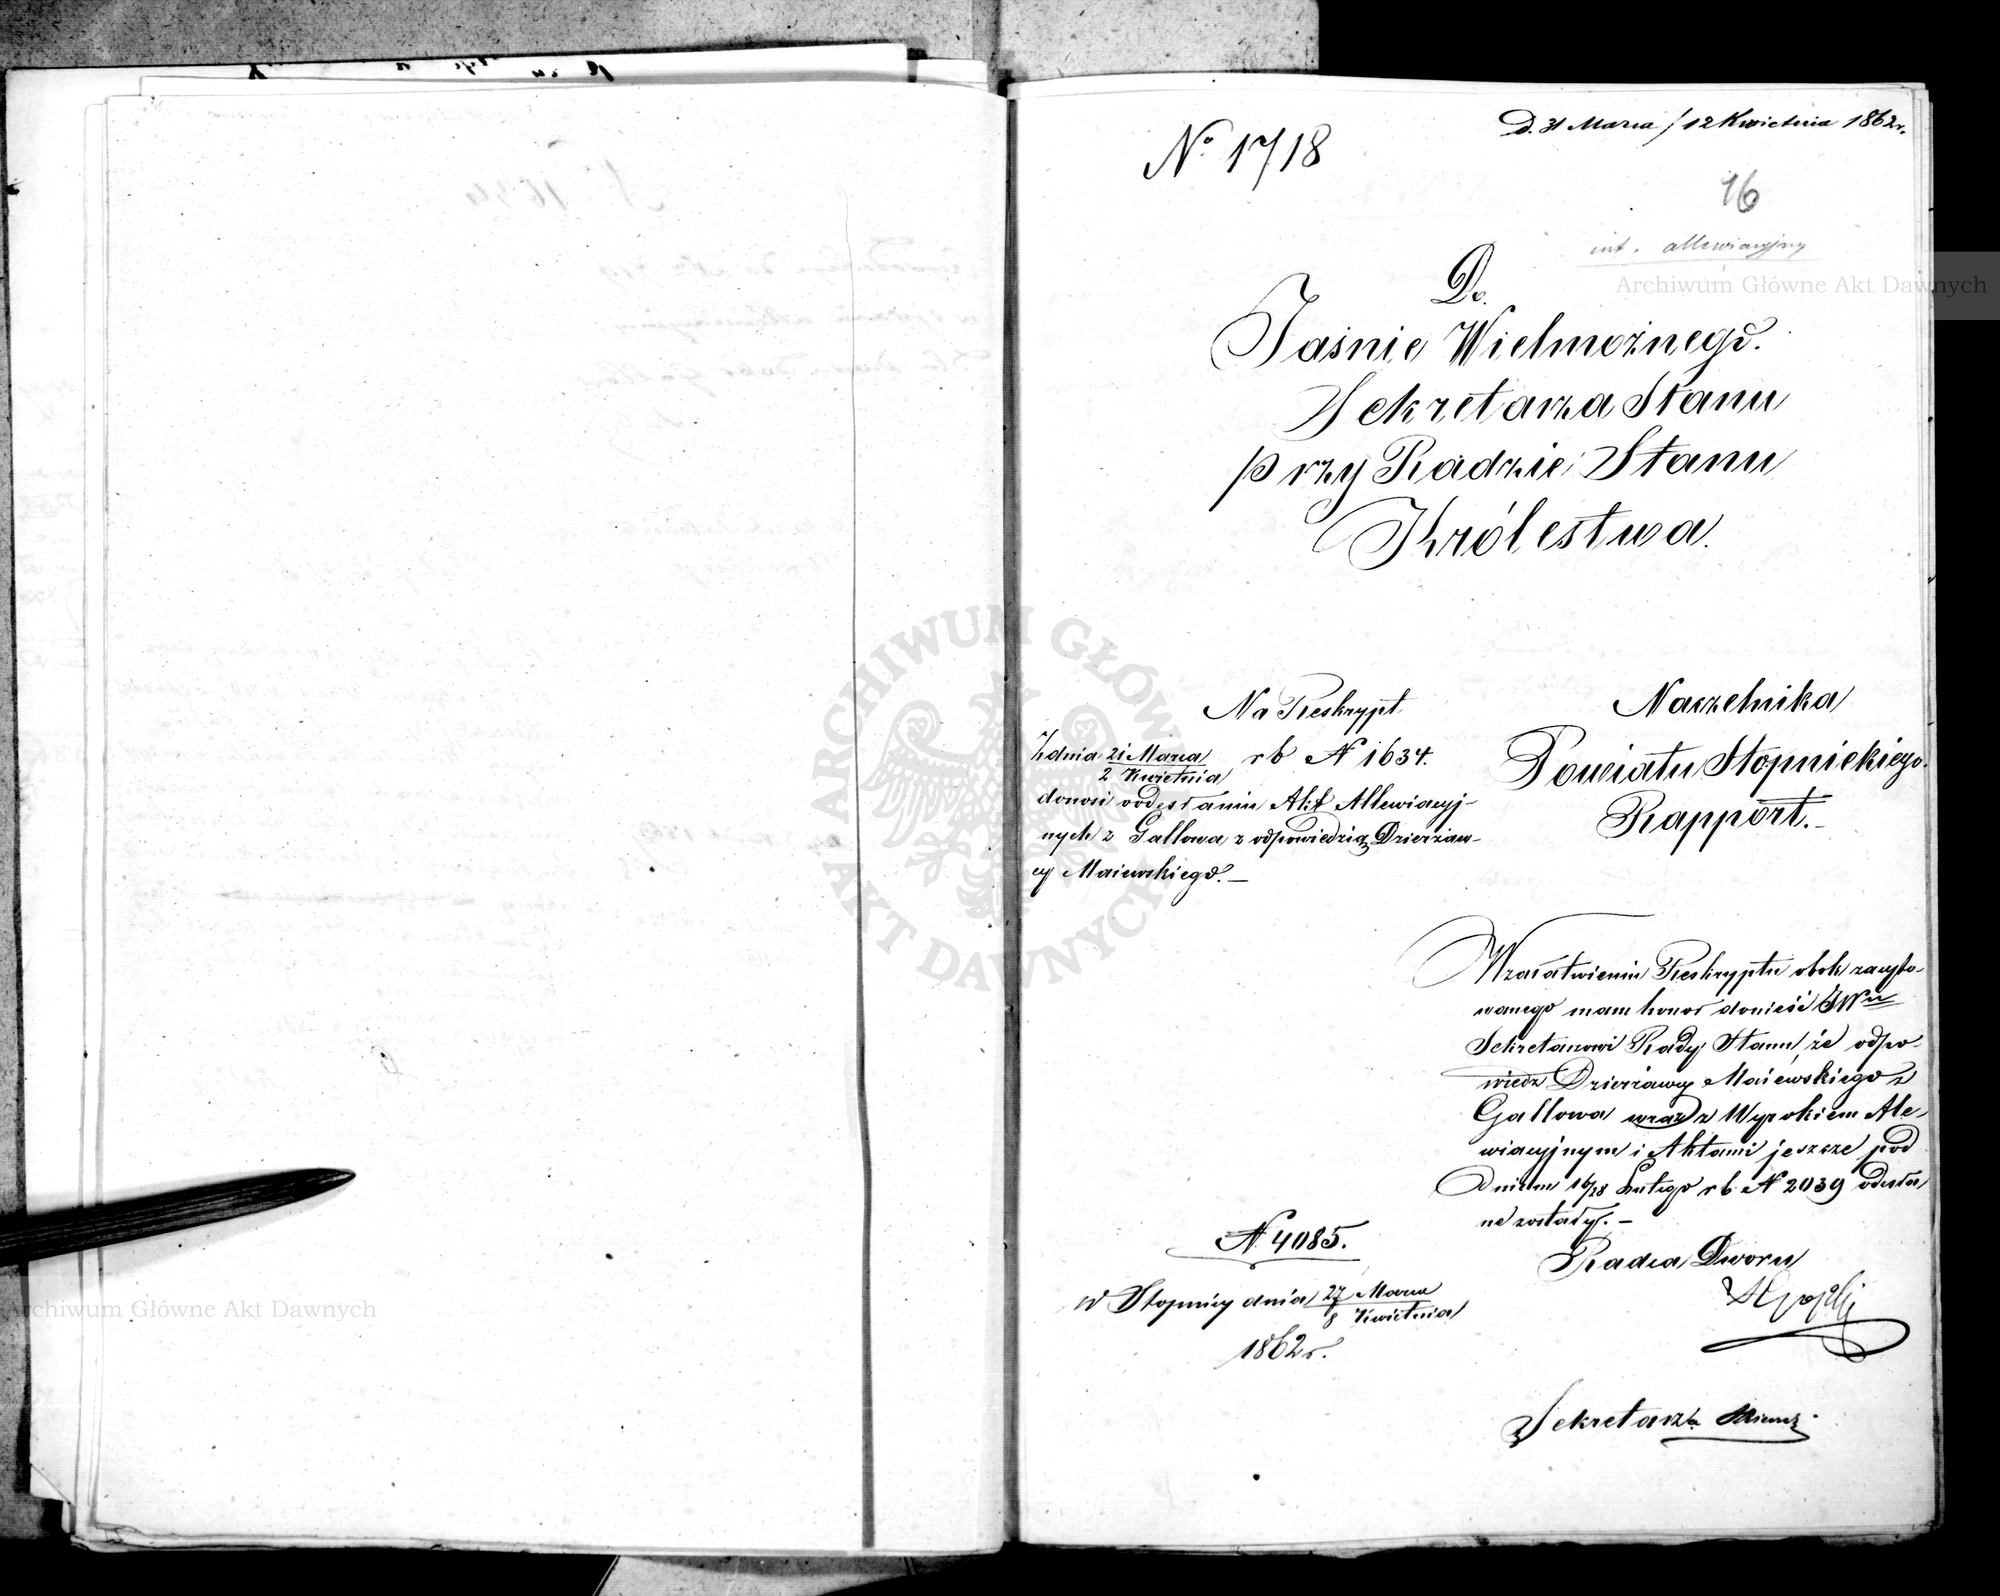 No 1718
D. 31 Marca / 12 Kwietnia 1862 r.
16
int. allewiacyjny
Do.
Jaśnie Wielmożnego.
Sekretarza Stanu
przy Radzie Stanu
Królestwa.
Naczelnika
Powiatu Stopnickiego.
Rapport.-
Na Reskrypt
Z dnia 21 Marca / 2 Kwietnia r b N 1634.
donosi o odesłaniu Akt Allewiacyj-
nych z Gallowa z odpowiedzią Dzierżaw-
cy Maiewskiego.-
W załatwieniu Reskryptu obok zacyto-
wanego mam honor donieść JWu
Sekretarzowi Rady Stanu, że odpo-
wiedź Dzierżawcy Maiewskiego z
Gallowa wraz z Wyrokiem Ale-
wiacyjnym i Aktami jeszcze pod
Dniem 16/28 Lutego r b N 2039 odesła
ne zostały.-
Radca Dworu
N 4085.
w Stopnicy dnia 27 Marca / 8 Kwietnia
1862 r.
Sekretarz
Archiwum Główne Akt Dawnych
ARCHIWUM GŁÓWNE AKT DAWNYCH
Archiwum Główne Akt Dawnych